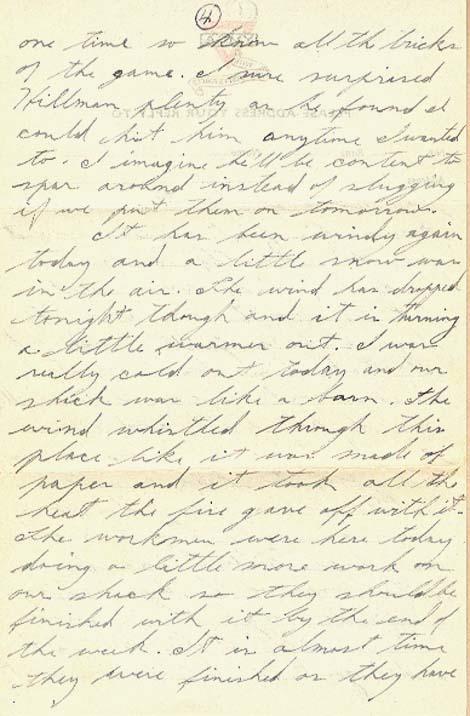 4
one time so know all th tricks
of the game. I sure surprised
Hillman plenty as he found I
could hit him anytime I wanted
to. I imagine he'll be content to
spar around instead of slugging
if we put them on tomorrow.
It has been windy again
today and a little snow was
in the air. The wind has dropped
tonight though and it is turning
a little warmer out. I was
really cold out today and our
shack was like a barn. The
wind whistled through this
place like it was made of
paper and it took all the
heat the fire gave off with it.
The workmen were here today
doing a little more work on
our shack so they should be
finished with it by the end of
the week. It is almost time
they were finished as they have
PLEASE ADDRESS YOUR REPLY TO